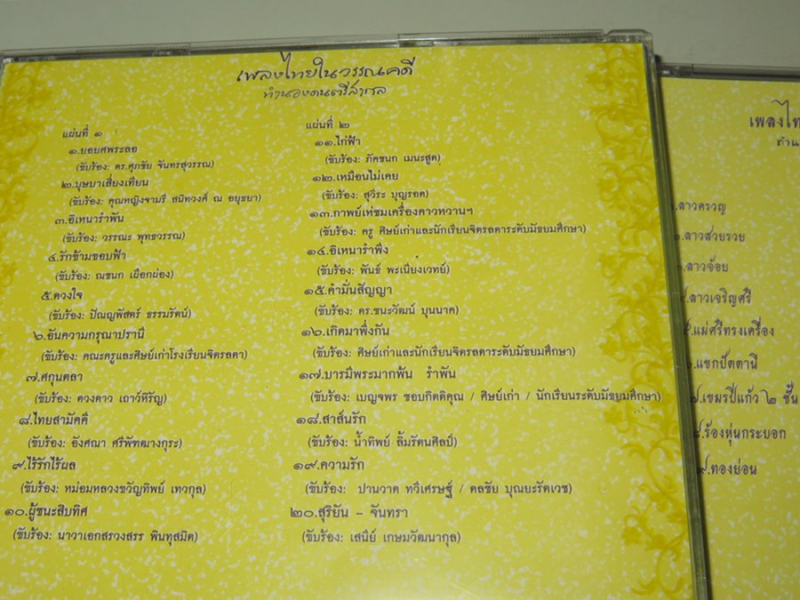 เพลงไทยในวรรณคดี
ทำนองดนตรีสากล
แผ่นที่ ๑
๑.ยอยศพระลอ
(ขับร้อง: ดร.ศุภชัย จันทรสุวรรณ)
๒.บุษบาเสี่ยงเทียน
(ขับร้อง: คุณหญิงจามรี สนิทวงศ์ ณ อยุธยา)
๓.อิเหนารำพัน
(ขับร้อง: วรรณะ พุทธวรรณ)
๔.รักข้ามขอบฟ้า
(ขับร้อง: ณชนก เผือกผ่อง)
๕.ดวงใจ
(ขับร้อง: ปัณญพัสตร์ ธรรมรัตน์)
๖.อันความกรุณาปรานี
(ขับร้อง: คณะครูและศิษย์เก่าโรงเรียนจิตรลดา)
๗.ศกุนตลา
(ขับร้อง: ดวงดาว เถาว์หิรัญ)
๘.ไทยสามัคคี
(ขับร้อง: อังศณา ศรีพัฒฒางกุระ)
๙.ไร้รักไร้ผล
(ขับร้อง: หม่อมหลวงขวัญทิพย์ เทวกุล)
๑๐.ผู้ชนะสิบทิศ
(ขับร้อง: นาวาเอกสรวงสรร พินทุสมิต)
แผ่นที่ ๒
๑๑.ไก่ฟ้า
(ขับร้อง: ภัคชนก เมนะสูต)
๑๒.เหมือนไม่เคย
(ขับร้อง: สุวีระ บุญรอด)
๑๓.กาพย์เห่ชมเครื่องคาวหวานฯ
(ขับร้อง: ครู ศิษย์เก่าและนักเรียนจิตรลดาระดับมัธยมศึกษา)
๑๔.อิเหนารำพึง
(ขับร้อง: พันธ์ พะเนียงเวทย์)
๑๕.คำมั่นสัญญา
(ขับร้อง: ดร.ชนะวัฒน์ บุนนาค)
๑๖.เกิดมาพึ่งกัน
(ขับร้อง: ศิษย์เก่าและนักเรียนจิตรลดาระดับมัธยมศึกษา)
๑๗.บารมีพระมากพ้น รำพัน
(ขับร้อง: เบญจพร ชอบกิตติคุณ / ศิษย์เก่า / นักเรียนระดับมัธยมศึกษา)
๑๘.สาส์นรัก
(ขับร้อง: น้ำทิพย์ ลิ้มรัตนศิลป์)
๑๙.ความรัก
(ขับร้อง: ปานวาด ทวีเศรษฐ์ / ดลชัย บุณยะรัตเวช)
๒๐.สุริยัน - จันทรา
(ขับร้อง: เสนีย์ เกษมวัฒนากุล)
เพลงไท
.ลาวครวญ
.ลาวสวยรวย
.ลาวจ้อย
.ลาวเจริญศรี
.แม่ศรีทรงเครื่อง
.แขกปัตตานี
๗.เขมรปี่แก้ว ๒ ชั้น
๘.ร้องหุ่นกระบอก
๙.ทองย่อน